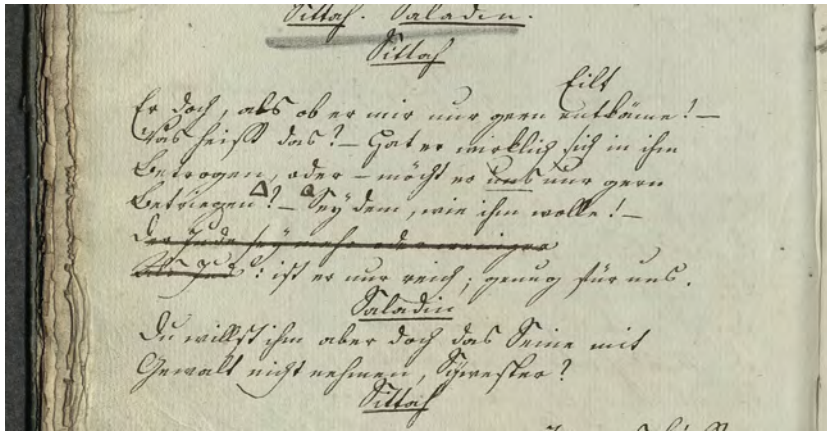 Sittah. Saladin.
Sittah
Eilt
Er doch, als ob er mir nur gern entkäme! —
Was heißt das? — Hat er wirklich sich in ihm
Betrogen, oder — möcht er uns nur gern
Betriegen? — Sey dem, wie ihm wolle! —
Der Jude sey mehr oder weniger
Als Jud': ist er nur reich; genug für uns.
Saladin
Du willst ihm aber doch das Seine mit
Gewalt nicht nehmen, Schwester?
Sittah